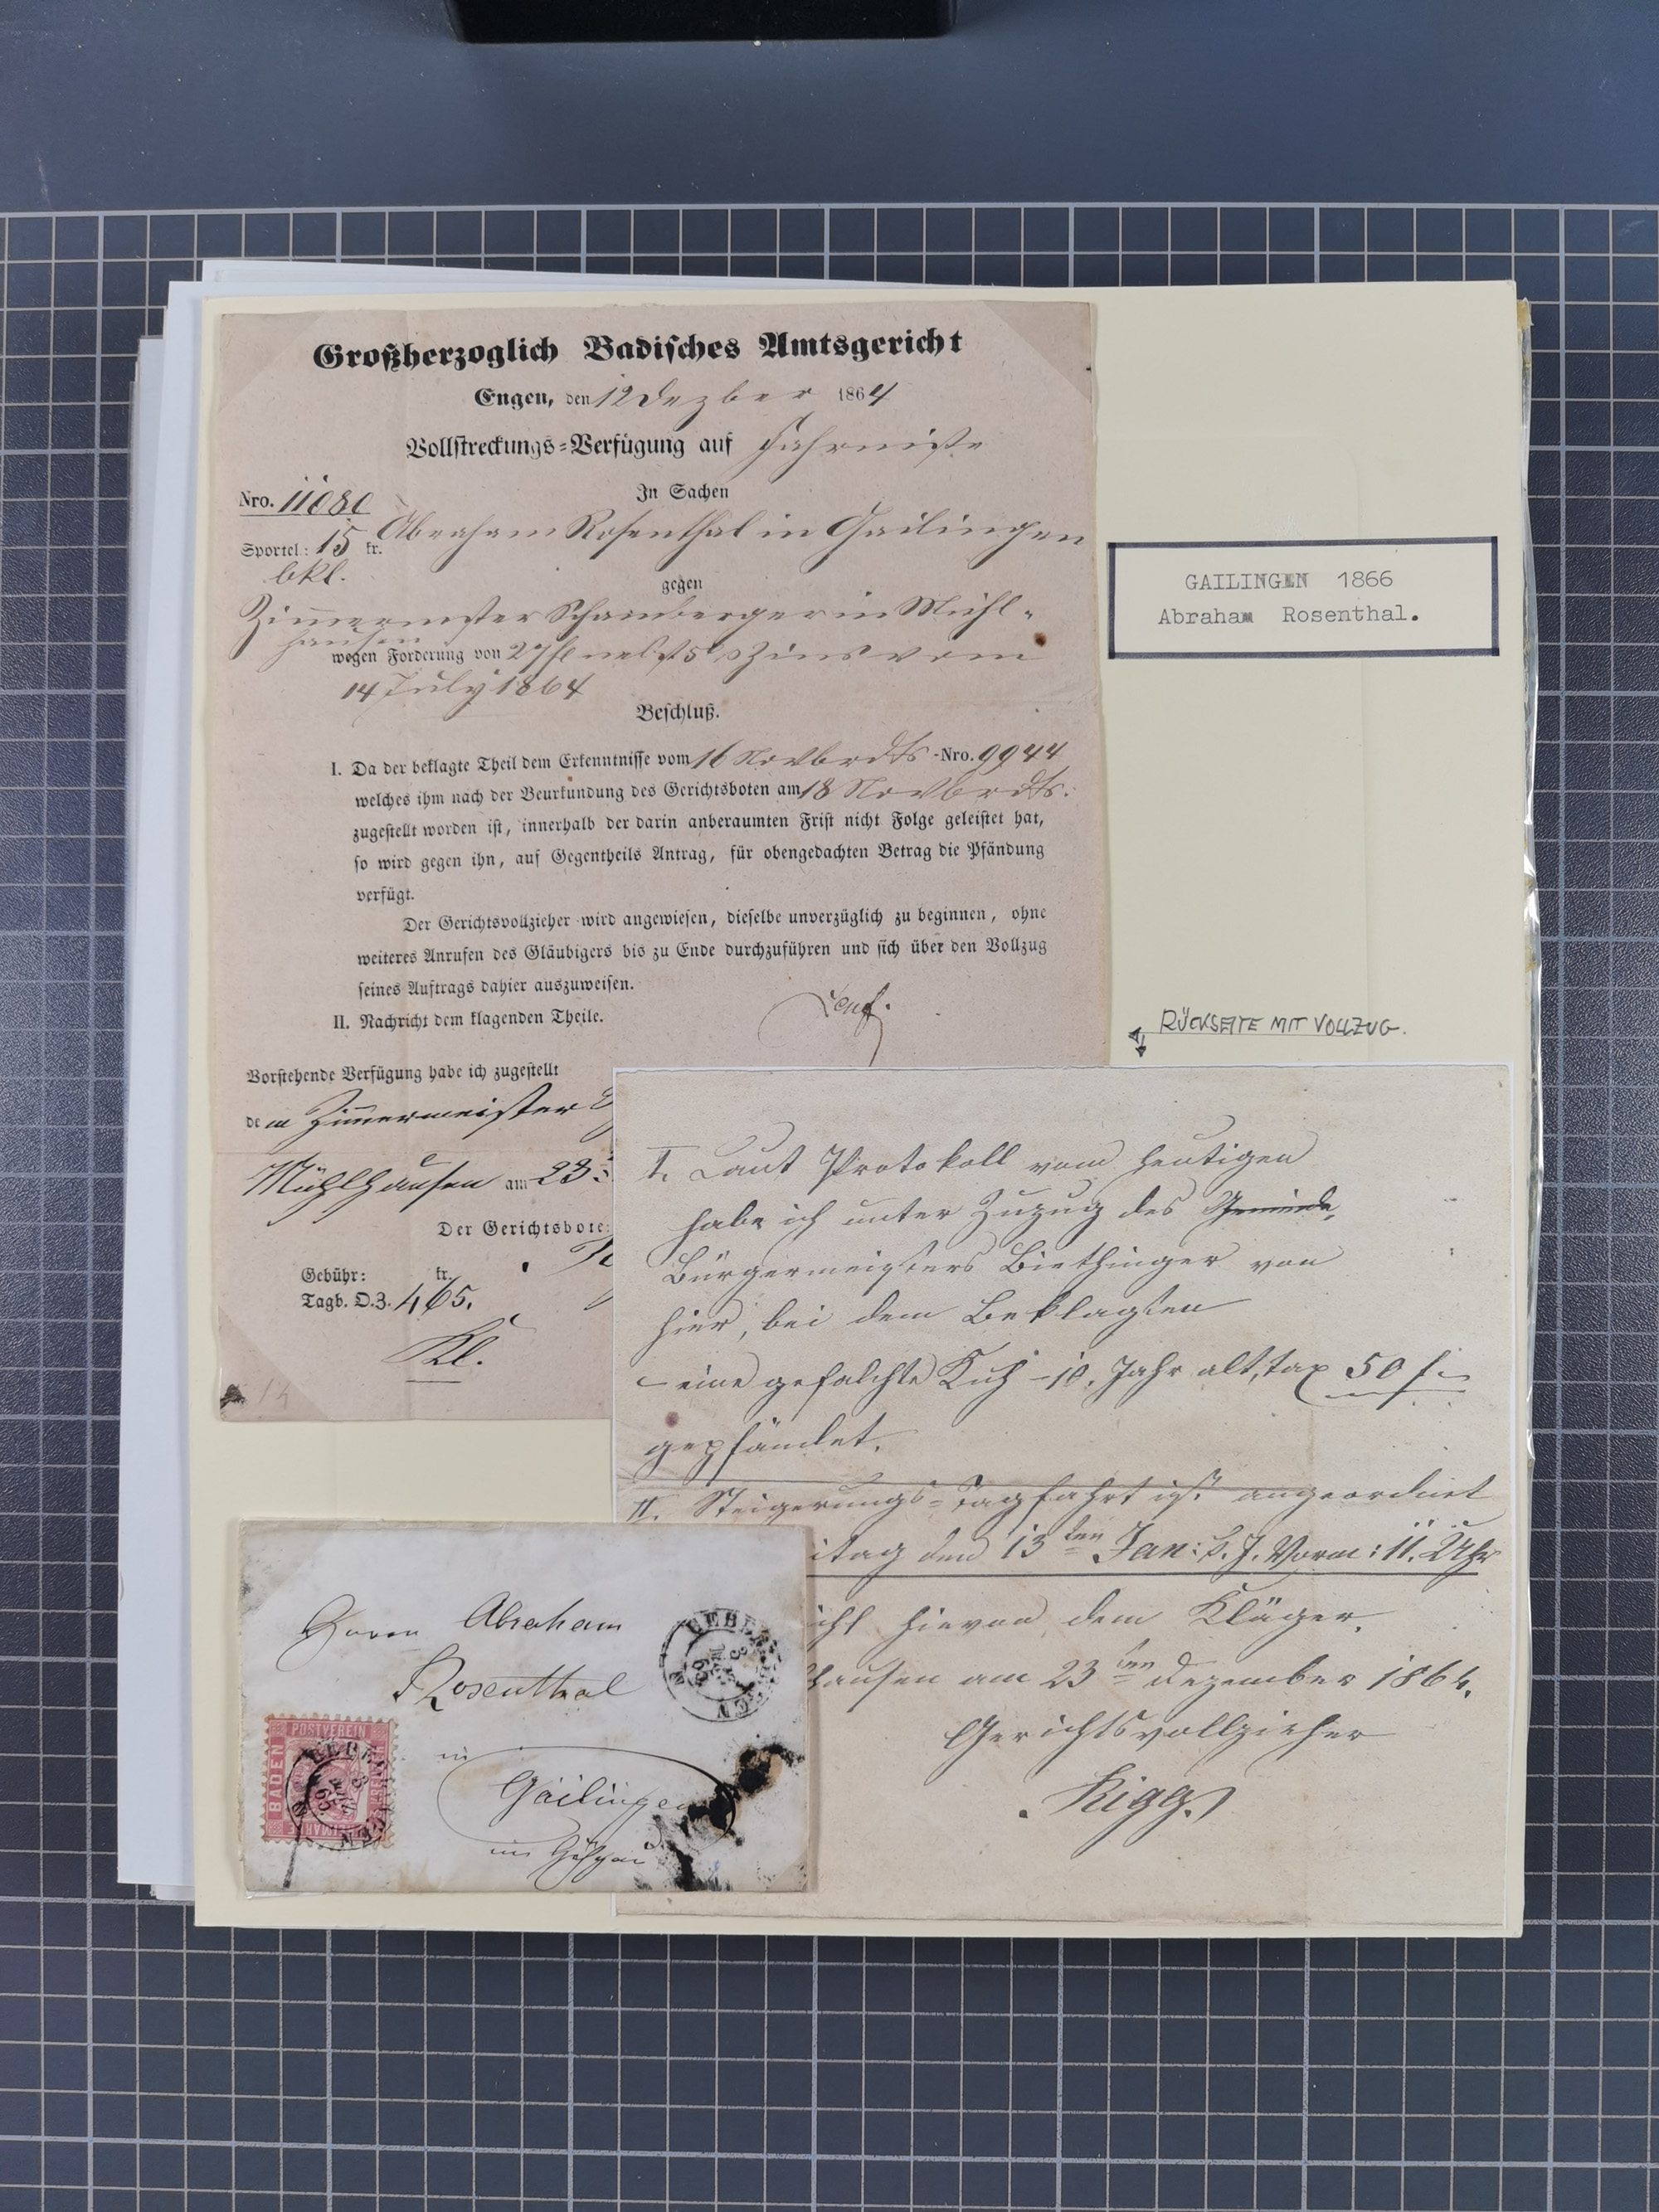 Großherzoglich Badisches Amtsgericht
Engen, den 12 Dezber 1864
Vollstreckungs-Verfügung auf Fahrniße
Nro. 11080
In Sachen
Sportel: 15 kr.
bkl.
Abraham Rosenthal in Gailingen
gegen
Zimermster Schamberger in Mühl-
hausen
wegen Forderung von 27 fl nebst 5% Zins vom
14 July 1864
Beschluß.
I. Da der beklagte Theil dem Erkenntnisse vom 16 Novbr -Nro. 9944
welches ihm nach der Beurkundung des Gerichtsboten am 18 Novbr
zugestellt worden ist, innerhalb der darin anberaumten Frist nicht Folge geleistet hat,
so wird gegen ihn, auf Gegentheils Antrag, für obengedachten Betrag die Pfändung
verfügt.
Der Gerichtsvollzieher wird angewiesen, dieselbe unverzüglich zu beginnen, ohne
weiteres Anrufen des Gläubigers bis zu Ende durchzuführen und sich über den Vollzug
seines Auftrags dahier auszuweisen.
II. Nachricht dem klagenden Theile.
Vorstehende Verfügung habe ich zugestellt
dem Zimermeister
Mühlhausen am 23
Der Gerichtsbote:
Gebühr: kr.
Tagb. O.Z. 465.
Kl.
GAILINGEN 1866
Abraham Rosenthal.
RÜCKSEITE MIT VOLLZUG.
I. Laut Protokoll vom heutigen
habe ich unter Zuzug des Gemeinde
Bürgermeisters Biethinger von
hier, bei dem Beklagten
- eine gefalchte Kuh - 10. Jahr alt, tax 50 f
gepfändet.
II. Steigerungs-Tagfahrt ist angeordnet
itag den 13ten Jan: k. J. Vorm: 11. Uhr
icht hievon dem Kläger.
hausen am 23ten Dezember 1864.
Gerichtsvollzieher
Rigg.
Herrn Abraham
Rosenthal
in
Gailingen
im Höhgau
POSTVEREIN
BADEN
FREIMARKE